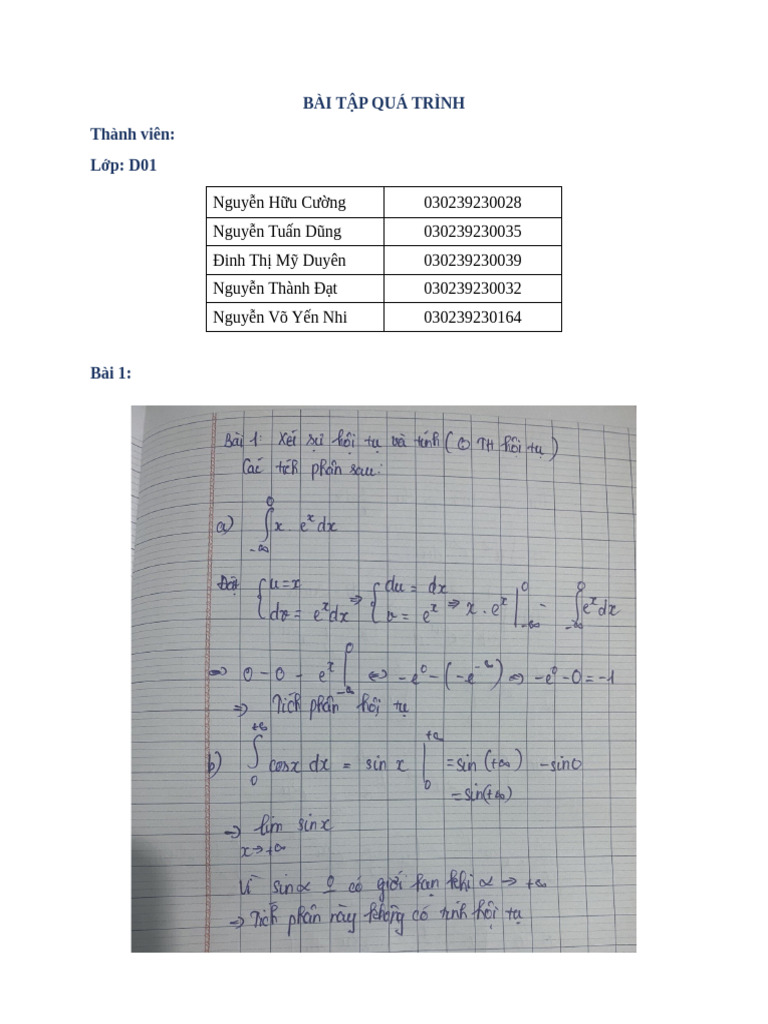 BÀI TẬP QUÁ TRÌNH
Thành viên:
Lớp: D01
Nguyễn Hữu Cường 030239230028
Nguyễn Tuấn Dũng 030239230035
Đinh Thị Mỹ Duyên 030239230039
Nguyễn Thành Đạt 030239230032
Nguyễn Võ Yến Nhi 030239230164
Bài 1:
Bài 1: Xét sự hội tụ và tính ( TH hội tụ)
Các tích phân sau:
a) ∫_{-∞}^{0} x . e^x dx
Đặt { u = x ; dv = e^x dx ⇒ { du = dx ; v = e^x ⇒ x . e^x |_{-∞}^{0} - ∫_{-∞}^{0} e^x dx
⇔ 0 - 0 - e^x |_{-∞}^{0} ⇔ -e^0 - (-e^{-∞}) ⇔ -e^0 - 0 = -1
⇒ Tích phân hội tụ
b) ∫_{0}^{+∞} cosx dx = sin x |_{0}^{+∞} = sin (+∞) - sin0
= sin(+∞)
⇒ lim_{x→+∞} sin x
Vì sin∝ 0 có giới hạn khi ∝ → +∞
⇒ Tích phân này không có tính hội tụ